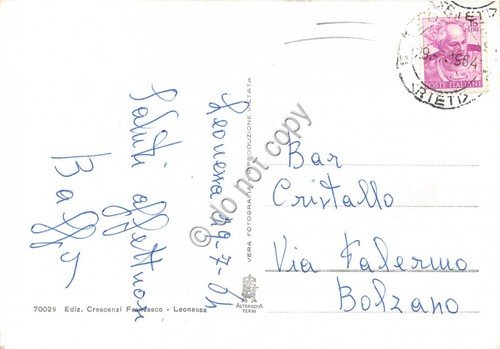 Leonessa 29-7-64
Saluti affettuosi
Baffy
Bar
Cristallo
Via Palermo
Bolzano
15
POSTE ITALIANE
RIETI
70029 Ediz. Crescenzi Francesco - Leonessa
VERA FOTOGRAFIA RIPRODUZIONE VIETATA
ALTEROCCA
TERNI
©do not copy